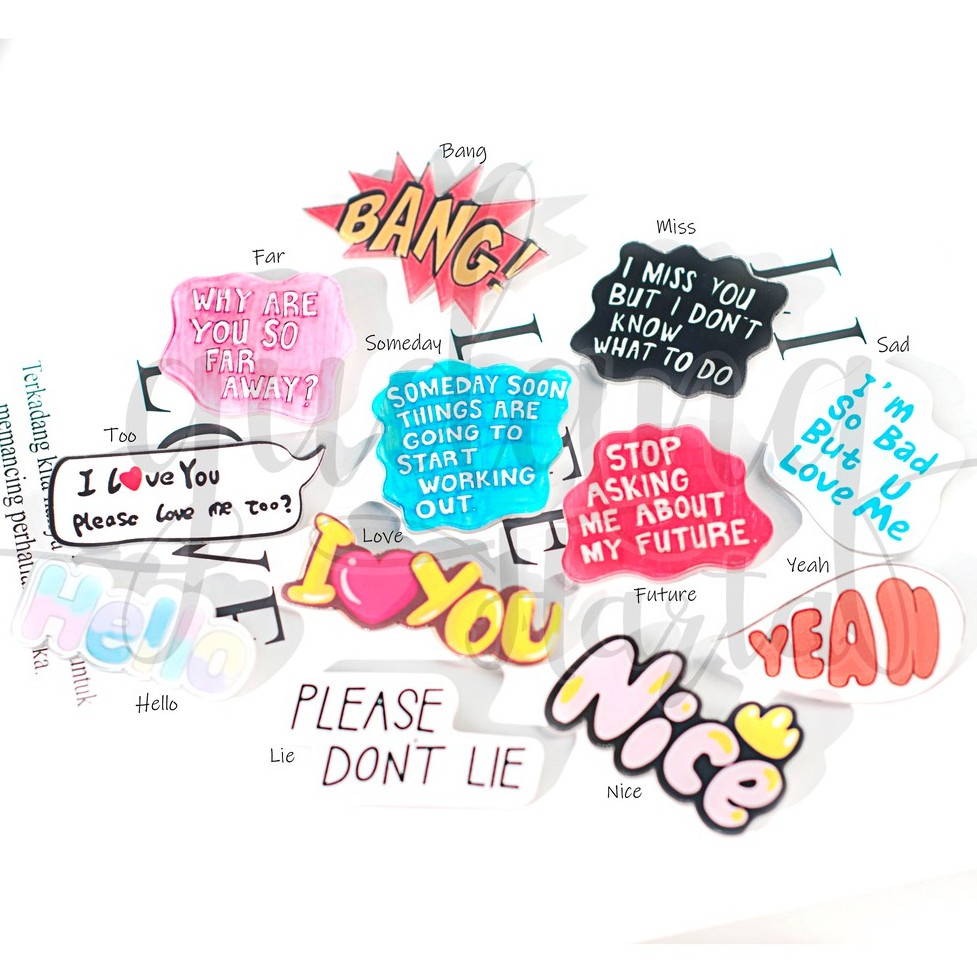 Bang
BANG!
Miss
I MISS YOU
BUT I DON'T
KNOW
WHAT TO DO
Far
WHY ARE
YOU SO
FAR
AWAY?
Someday
SOMEDAY SOON
THINGS ARE
GOING TO
START
WORKING
OUT.
Sad
I'm
So Bad
But U
Love Me
Too
I Love You
please love me too?
STOP
ASKING
ME ABOUT
MY FUTURE.
Future
Love
I YOU
Yeah
YEAH
Hello
Hello
PLEASE
DON'T LIE
Lie
Nice
Nice
Terkadang kita
memancing perhatia
untuk
ka.